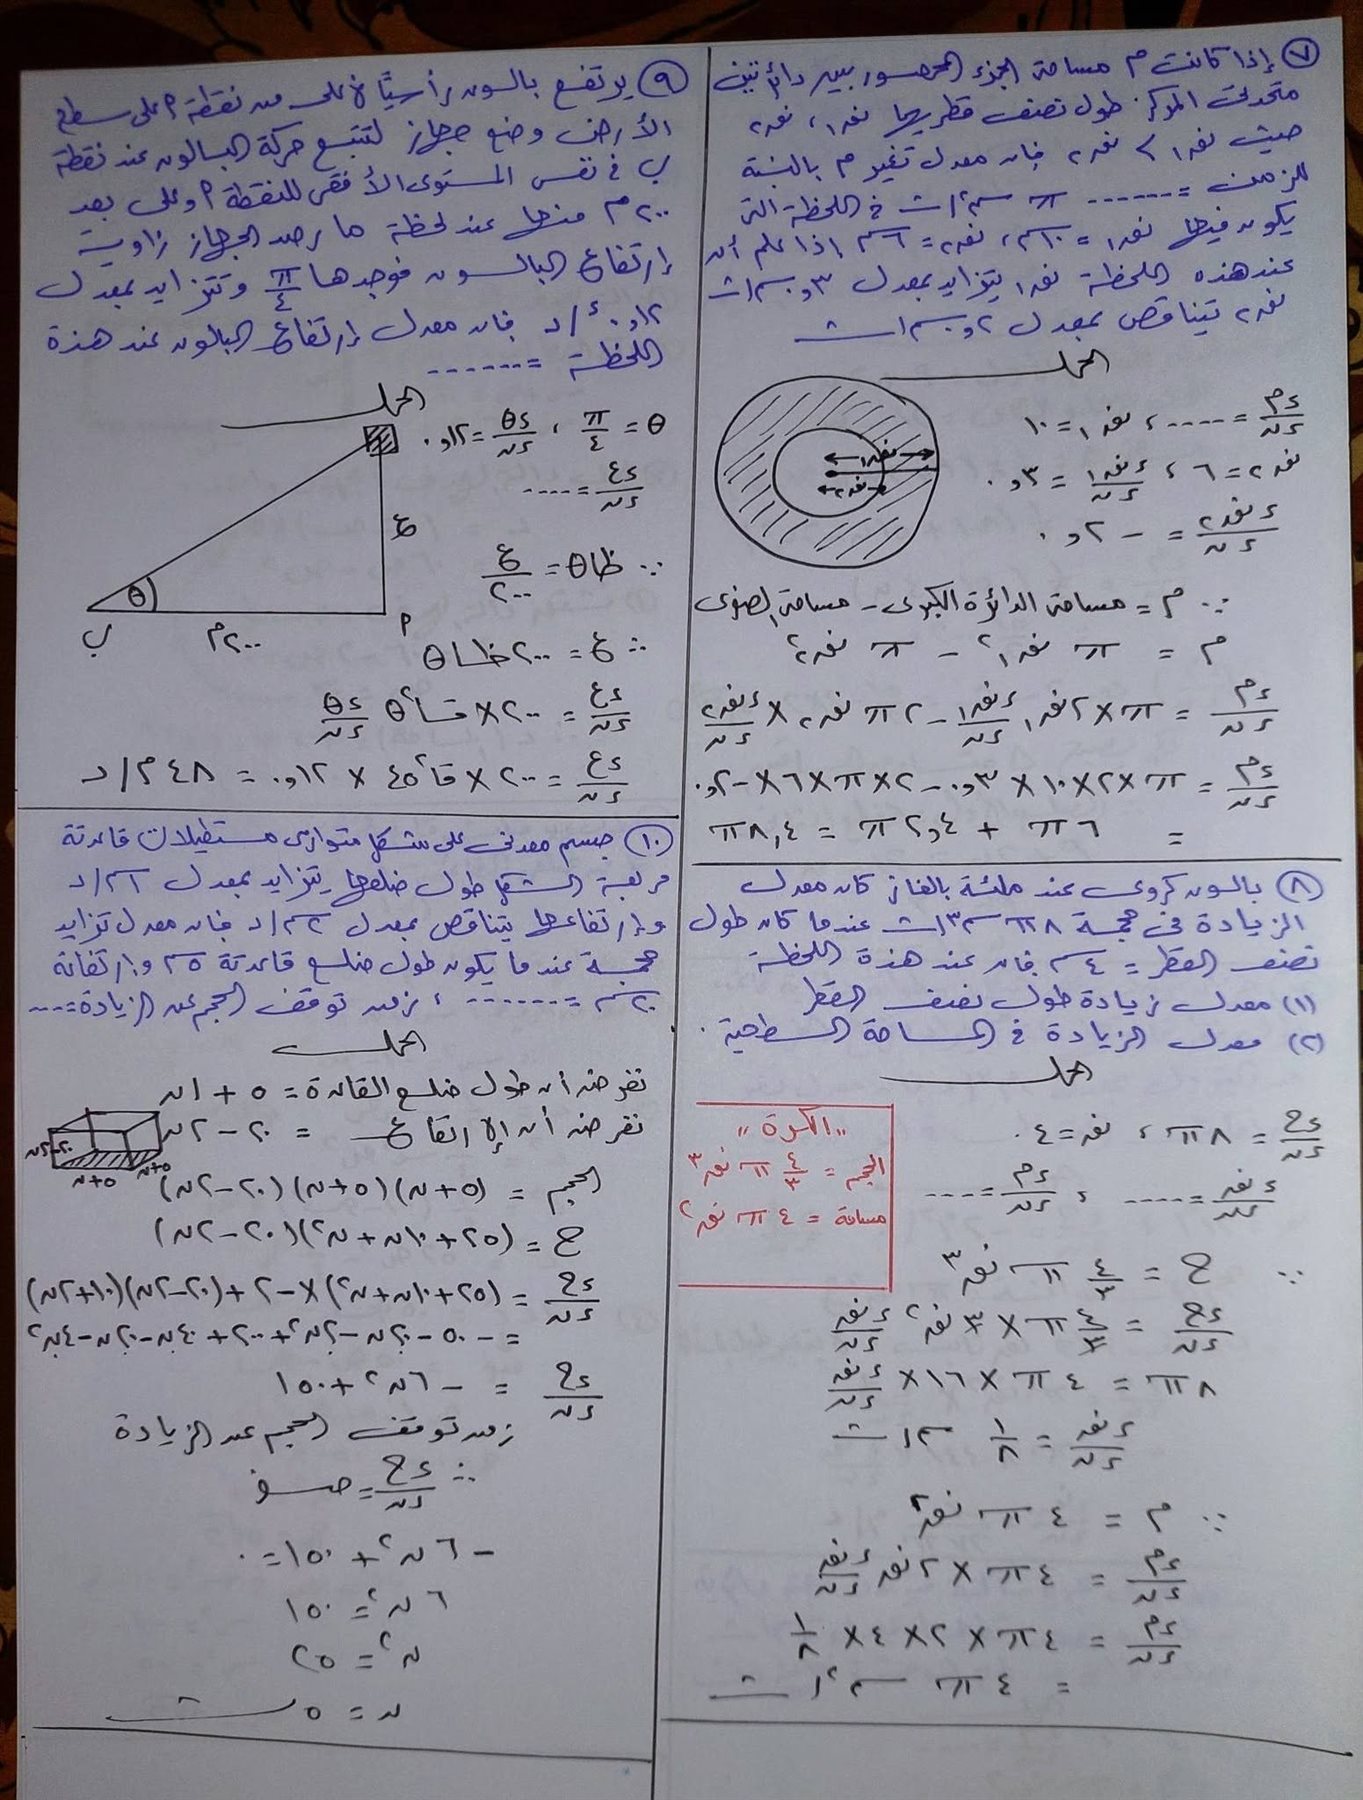 ٧ إذا كانت م مساحة الجزء المحصور بين دائرتين
متحدتى المركز طول نصف قطريهما نق١، نق٢
حيث نق١ > نق٢ فإن معدل تغير م بالنسبة
للزمن = ------ π سم٢/ث فى اللحظة التى
يكون فيها نق١ = ١٠سم، نق٢ = ٦سم إذا علم أن
عند هذه اللحظة نق١ يتزايد بمعدل ٠٫٣ سم/ث
نق٢ تتناقص بمعدل ٠٫٢ سم/ث
الحل
نق١
نق٢
ءم/ءن = ----، نق١ = ١٠
نق٢ = ٦، ءنق١/ءن = ٠٫٣
ءنق٢/ءن = -٠٫٢
∵ م = مساحة الدائرة الكبرى - مساحة الصغرى
م = π نق١² - π نق٢²
ءم/ءن = π×٢نق١ ءنق١/ءن - ٢π نق٢ × ءنق٢/ءن
ءم/ءن = π×٢×١٠×٠٫٣ - ٢×π×٦×-٠٫٢
= ٦π + ٢٫٤π = ٨٫٤π
٨ بالون كروى عند ملئة بالغاز كان معدل
الزيادة فى حجمة ٨π سم٣/ث عندما كان طول
نصف القطر = ٤سم فإن عند هذة اللحظة
(١) معدل زيادة طول نصف القطر
(٢) معدل الزيادة فى المساحة السطحية.
الحل
"الكرة"
الحجم = ٤/٣ π نق³
مساحة = ٤π نق²
ءح/ءن = ٨π، نق = ٤.
ءنق/ءن = ----، ءم/ءن = ----
∵ ح = ٤/٣ π نق³
ءح/ءن = ٤/٣ π×٣ نق² ءنق/ءن
٨π = ٤π×١٦× ءنق/ءن
ءنق/ءن = ١/٨ سم/ث
∵ م = ٤π نق²
ءم/ءن = ٤π×٢نق ءنق/ءن
ءم/ءن = ٤π×٢×٤×١/٨
= ٤π سم٢/ث
٩ يرتفع بالون رأسيًا لأعلى من نقطة أ على سطح
الأرض وضع جهاز لتتبع حركة البالون عند نقطة
ب فى نفس المستوى الأفقى للنقطة أ وعلى بعد
٢٠٠م منها عند لحظة ما رصد الجهاز زاوية
إرتفاع البالون فوجدها π/٤ وتتزايد بمعدل
٠٫١٢ ء/د فإن معدل إرتفاع البالون عند هذة
اللحظة = ------
الحل
θ = π/٤، ءθ/ءن = ٠٫١٢
ءع/ءن = ----
ع
θ
أ
٢٠٠م
ب
∵ ظاθ = ع/٢٠٠
∴ ع = ٢٠٠ظاθ
ءع/ءن = ٢٠٠×قا²θ ءθ/ءن
ءع/ءن = ٢٠٠×قا²٤٥×٠٫١٢ = ٤٨م/د
١٠ جسم معدنى على شكل متوازى مستطيلات قاعدتة
مربعة الشكل طول ضلعها يتزايد بمعدل ١سم/د
وإرتفاعها يتناقص بمعدل ٢سم/د فإن معدل تزايد
حجمة عندما يكون طول ضلع قاعدتة ٥سم وإرتفاعة
٢٠سم = ------، زمن توقف الحجم عن الزيادة = ----
الحل
نفرض أن طول ضلع القاعدة = ٥ + ١ن
نفرض أن الإرتفاع = ٢٠ - ٢ن
٢٠-٢ن
٥+ن
٥+ن
الحجم = (٥+ن)(٥+ن)(٢٠-٢ن)
ح = (٢٥+١٠ن+ن²)(٢٠-٢ن)
ءح/ءن = (٢٥+١٠ن+ن²)×-٢+(٢٠-٢ن)(١٠+٢ن)
= -٥٠-٢٠ن-٢ن²+٢٠٠+٤٠ن-٢٠ن-٤ن²
ءح/ءن = -٦ن²+١٥٠
زمن توقف الحجم عن الزيادة
∴ ءح/ءن = صفر
-٦ن²+١٥٠=٠
٦ن² = ١٥٠
ن² = ٢٥
ن = ٥ ث